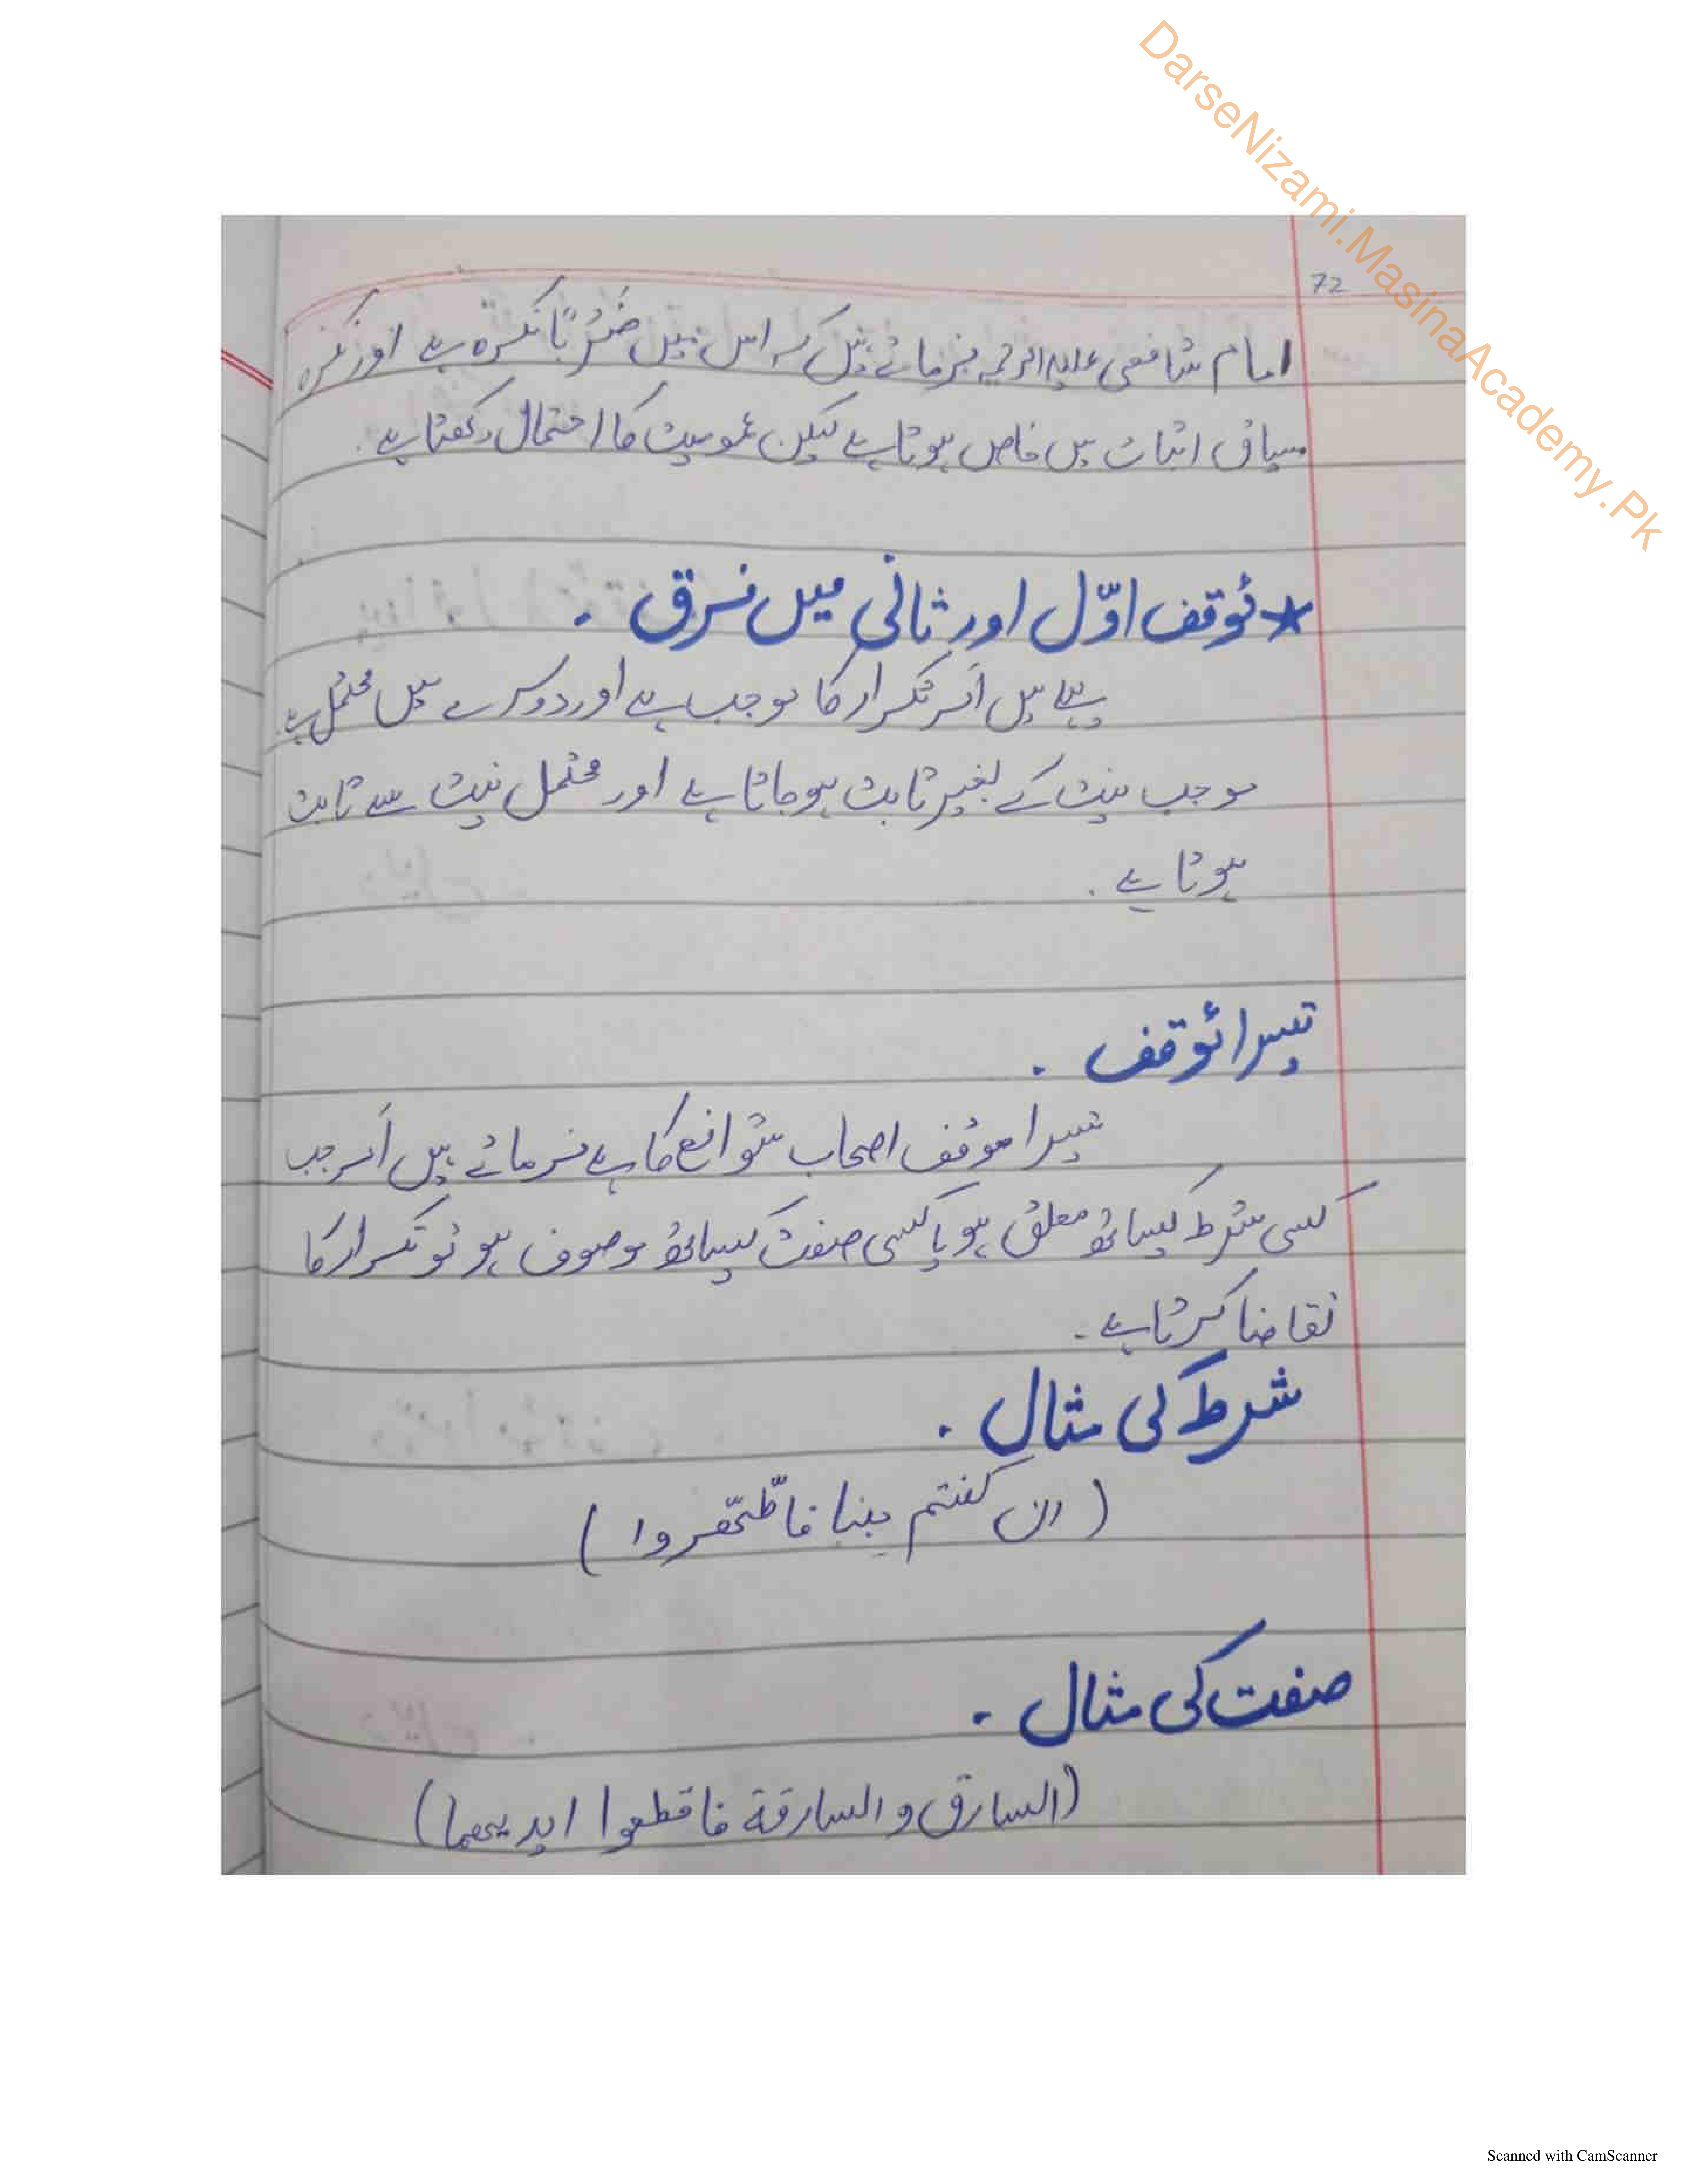 DarseNizami.MasinaAcademy.Pk
72
امام شافعی علیہ الرحمہ فرماتے ہیں کہ اس میں ضَرْبًا نکرہ ہے اور نکرہ
سیاق اثبات میں خاص ہوتا ہے لیکن عمومیت کا احتمال رکھتا ہے.
* مؤقف اوّل اور ثانی میں فرق .
پہلے میں اَمر تکرار کا موجب ہے اور دوسرے میں محتمل ہے.
موجب نیت کے بغیر ثابت ہوجاتا ہے اور محتمل نیت سے ثابت
ہوتا ہے .
تیسرا مؤقف .
تیسرا موقف اصحاب شوافع کا ہے فرماتے ہیں اَمر جب
کسی شرط کیساتھ معلق ہو یا کسی صفت کیساتھ موصوف ہو تو تکرار کا
تقاضا کرتا ہے -
شرط کی مثال .
( ان كنتم جنبا فاطّهّروا )
صفت کی مثال .
(السارق والسارقة فاقطعوا ايديهما)
Scanned with CamScanner